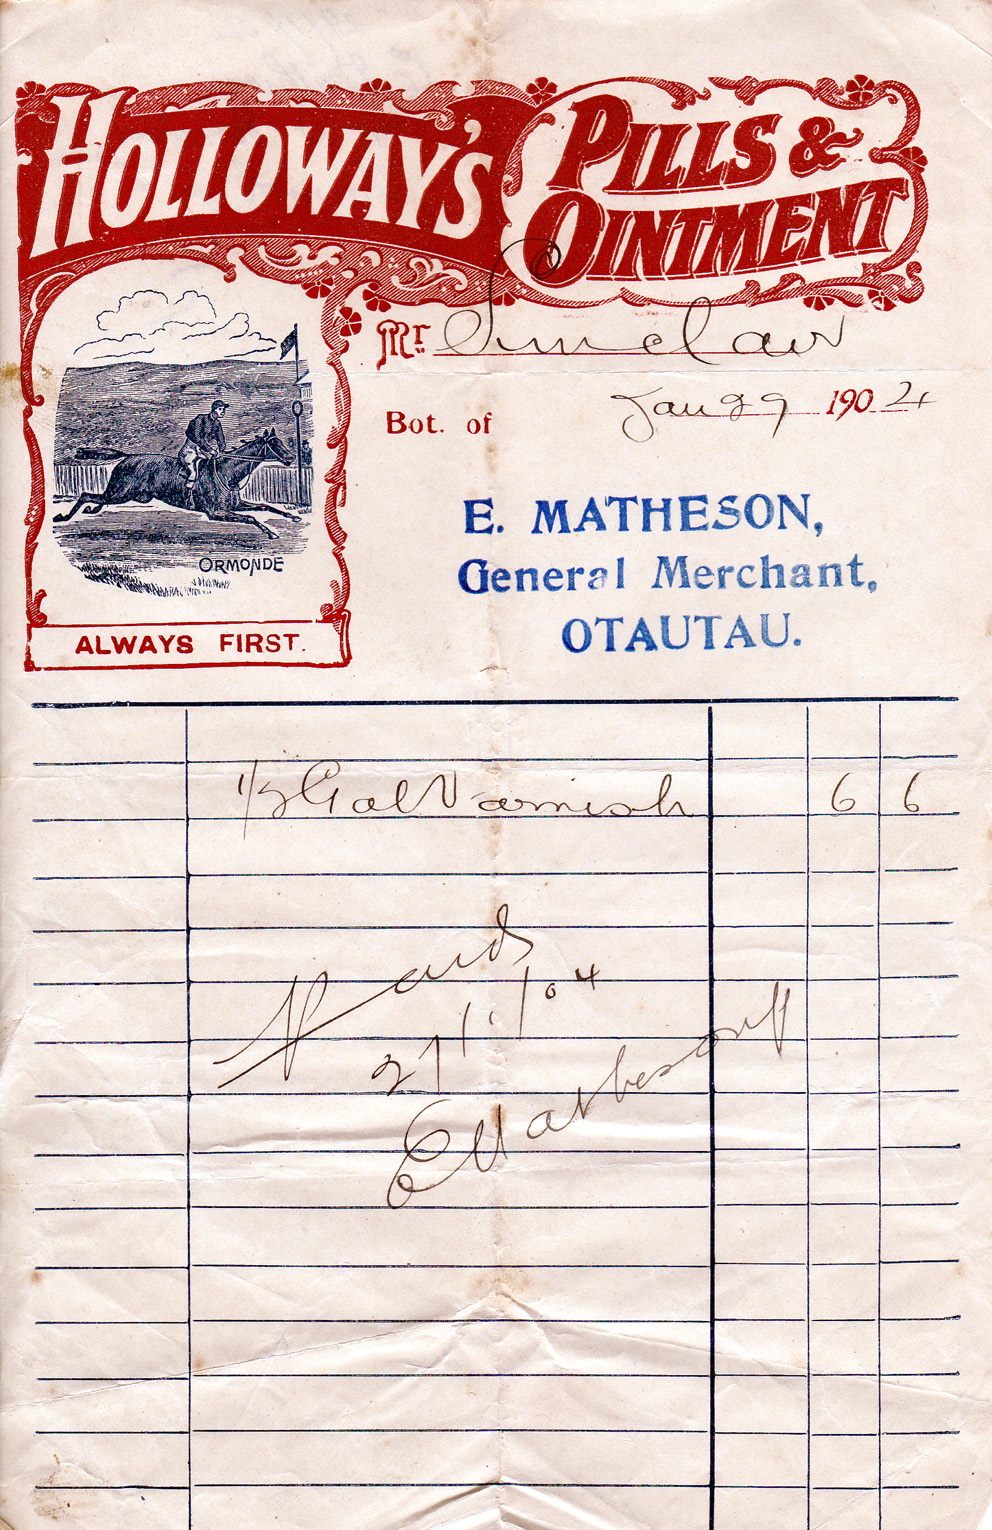 HOLLOWAY'S
PILLS &
OINTMENT
Mr. Sinclair
Bot. of Jan 29 1904
E. MATHESON,
General Merchant,
OTAUTAU.
ORMONDE
ALWAYS FIRST.
1/2 Gal Varnish 6 6
29/1/04
E Matheson